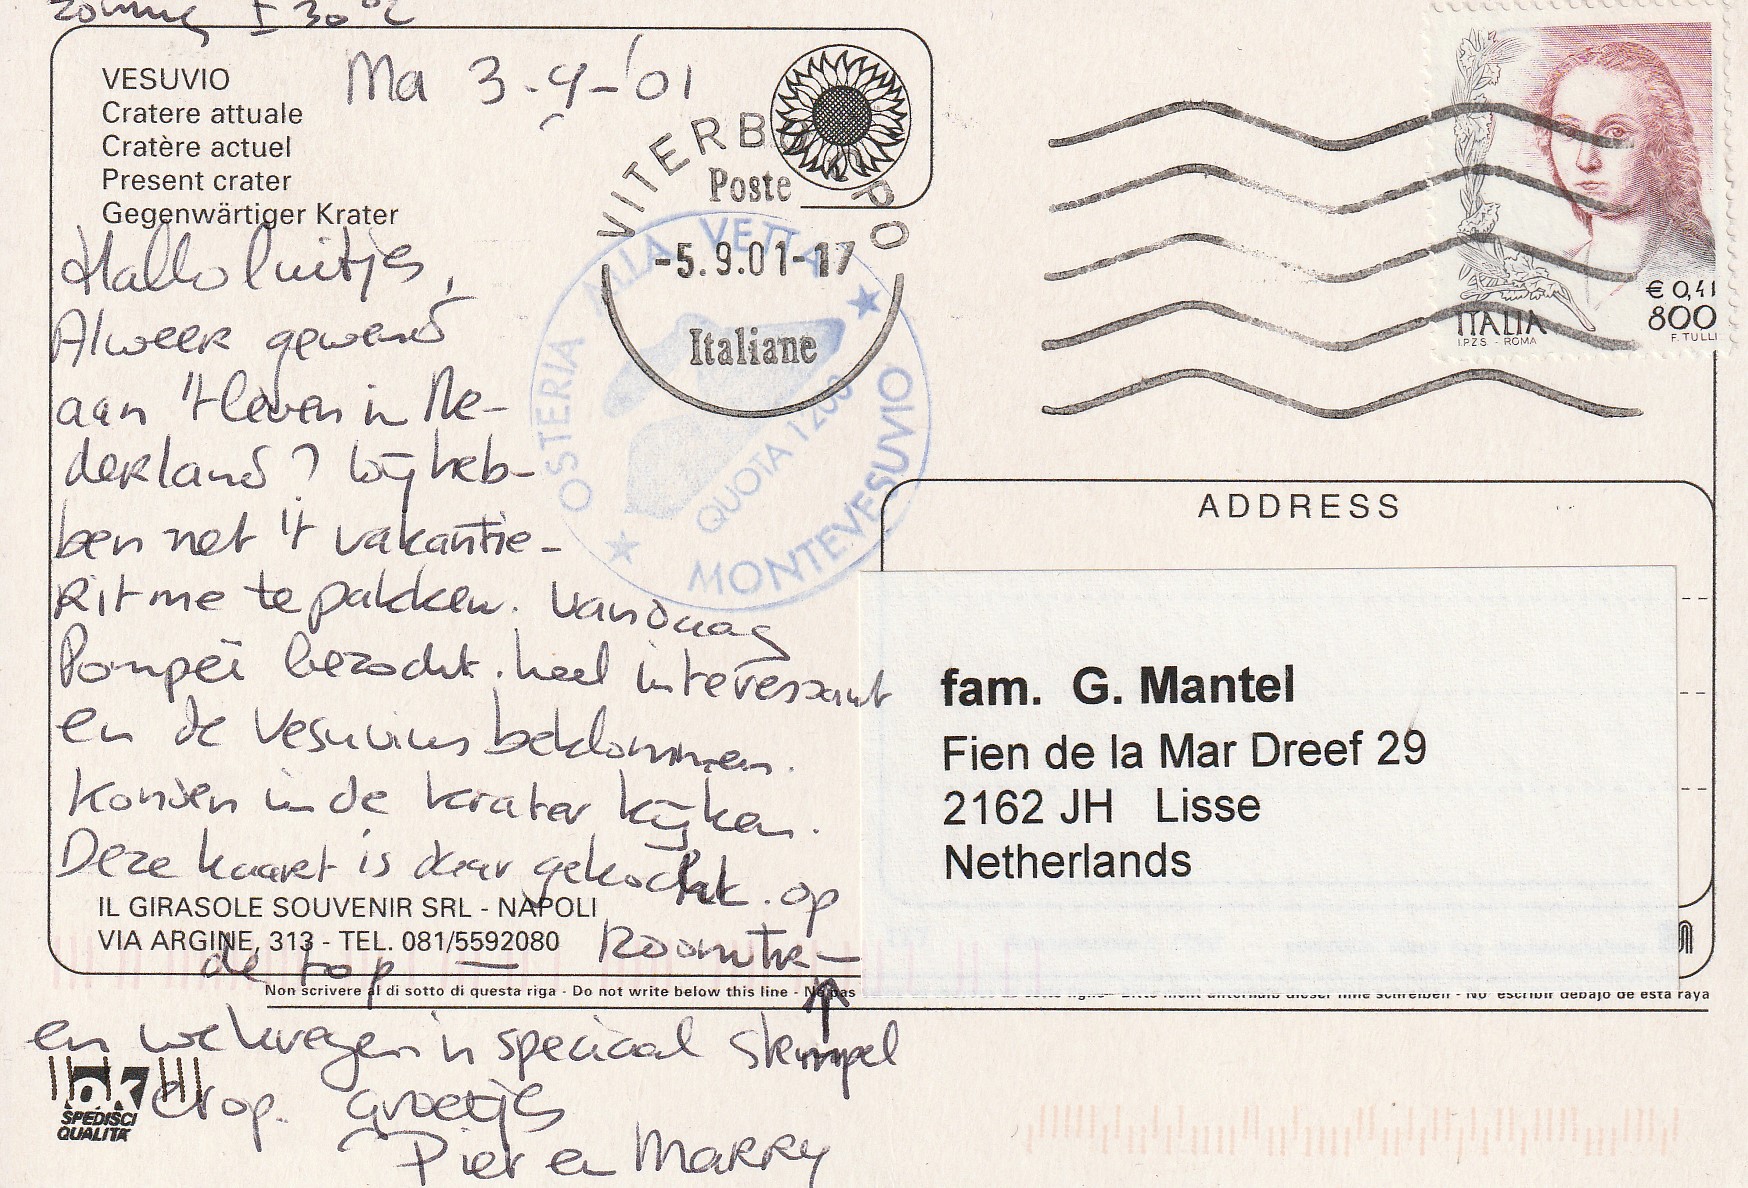 zonnig ± 30°C
Ma 3-9-'01
VESUVIO
Cratere attuale
Cratère actuel
Present crater
Gegenwärtiger Krater
VITERBO CPO
Poste
-5.9.01-17
Italiane
OSTERIA ALLA VETTA
QUOTA 1200
MONTEVESUVIO
€ 0,41
800
ITALIA
I.P.Z.S. - ROMA
F. TULLI
Hallo luitjes,
Alweer gewend
aan 't leven in Ne-
derland? Wij heb-
ben net 't vakantie-
ritme te pakken. Vandaag
Pompeï bezocht. heel interessant
en de Vesuvius beklommen.
Konden in de krater kijken.
Deze kaart is daar gekocht. op
de top 1200mtr
en we kregen 'n speciaal stempel
erop. Groetjes
Pier en MARRY
IL GIRASOLE SOUVENIR SRL - NAPOLI
VIA ARGINE, 313 - TEL. 081/5592080
Non scrivere al di sotto di questa riga - Do not write below this line - Ne pas
schreiben - No escribir debajo de esta raya
OK
SPEDISCI
QUALITA'
ADDRESS
fam. G. Mantel
Fien de la Mar Dreef 29
2162 JH Lisse
Netherlands